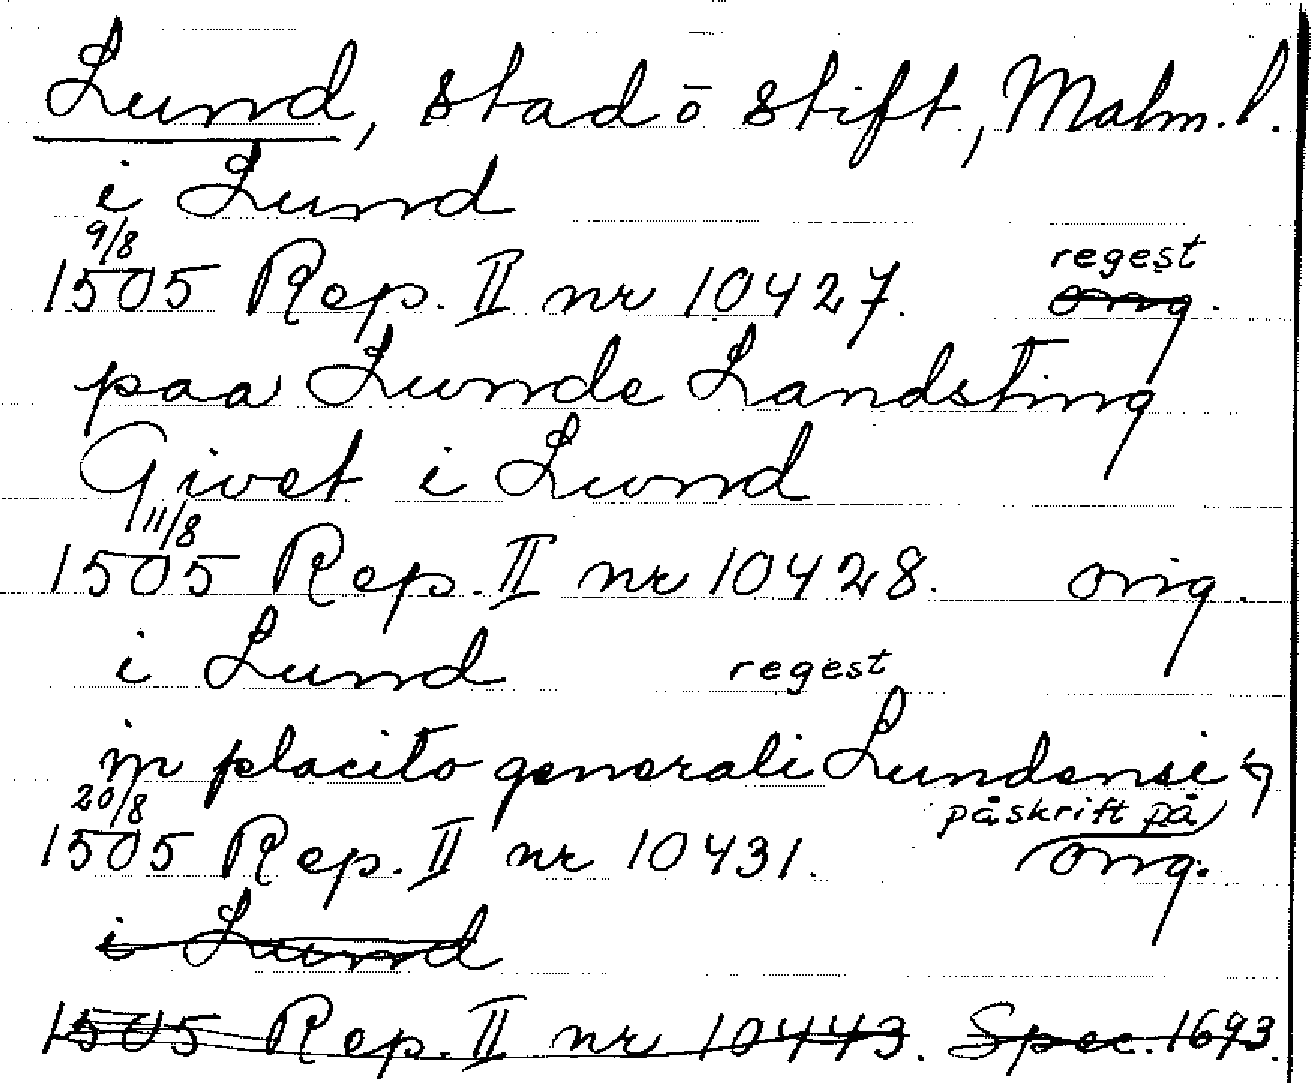 Lund, stad ō stift, Malm. l.
i Lund
9/8
1505 Rep. II nr 10427. regest orig.
paa Lunde Landsting
Givet i Lund
11/8
1505 Rep. II nr 10428. orig.
i Lund regest
in placito generali Lundensi
20/8
1505 Rep. II nr 10431. påskrift på orig.
i Lund
1505 Rep. II nr 10443. Spec. 1693.